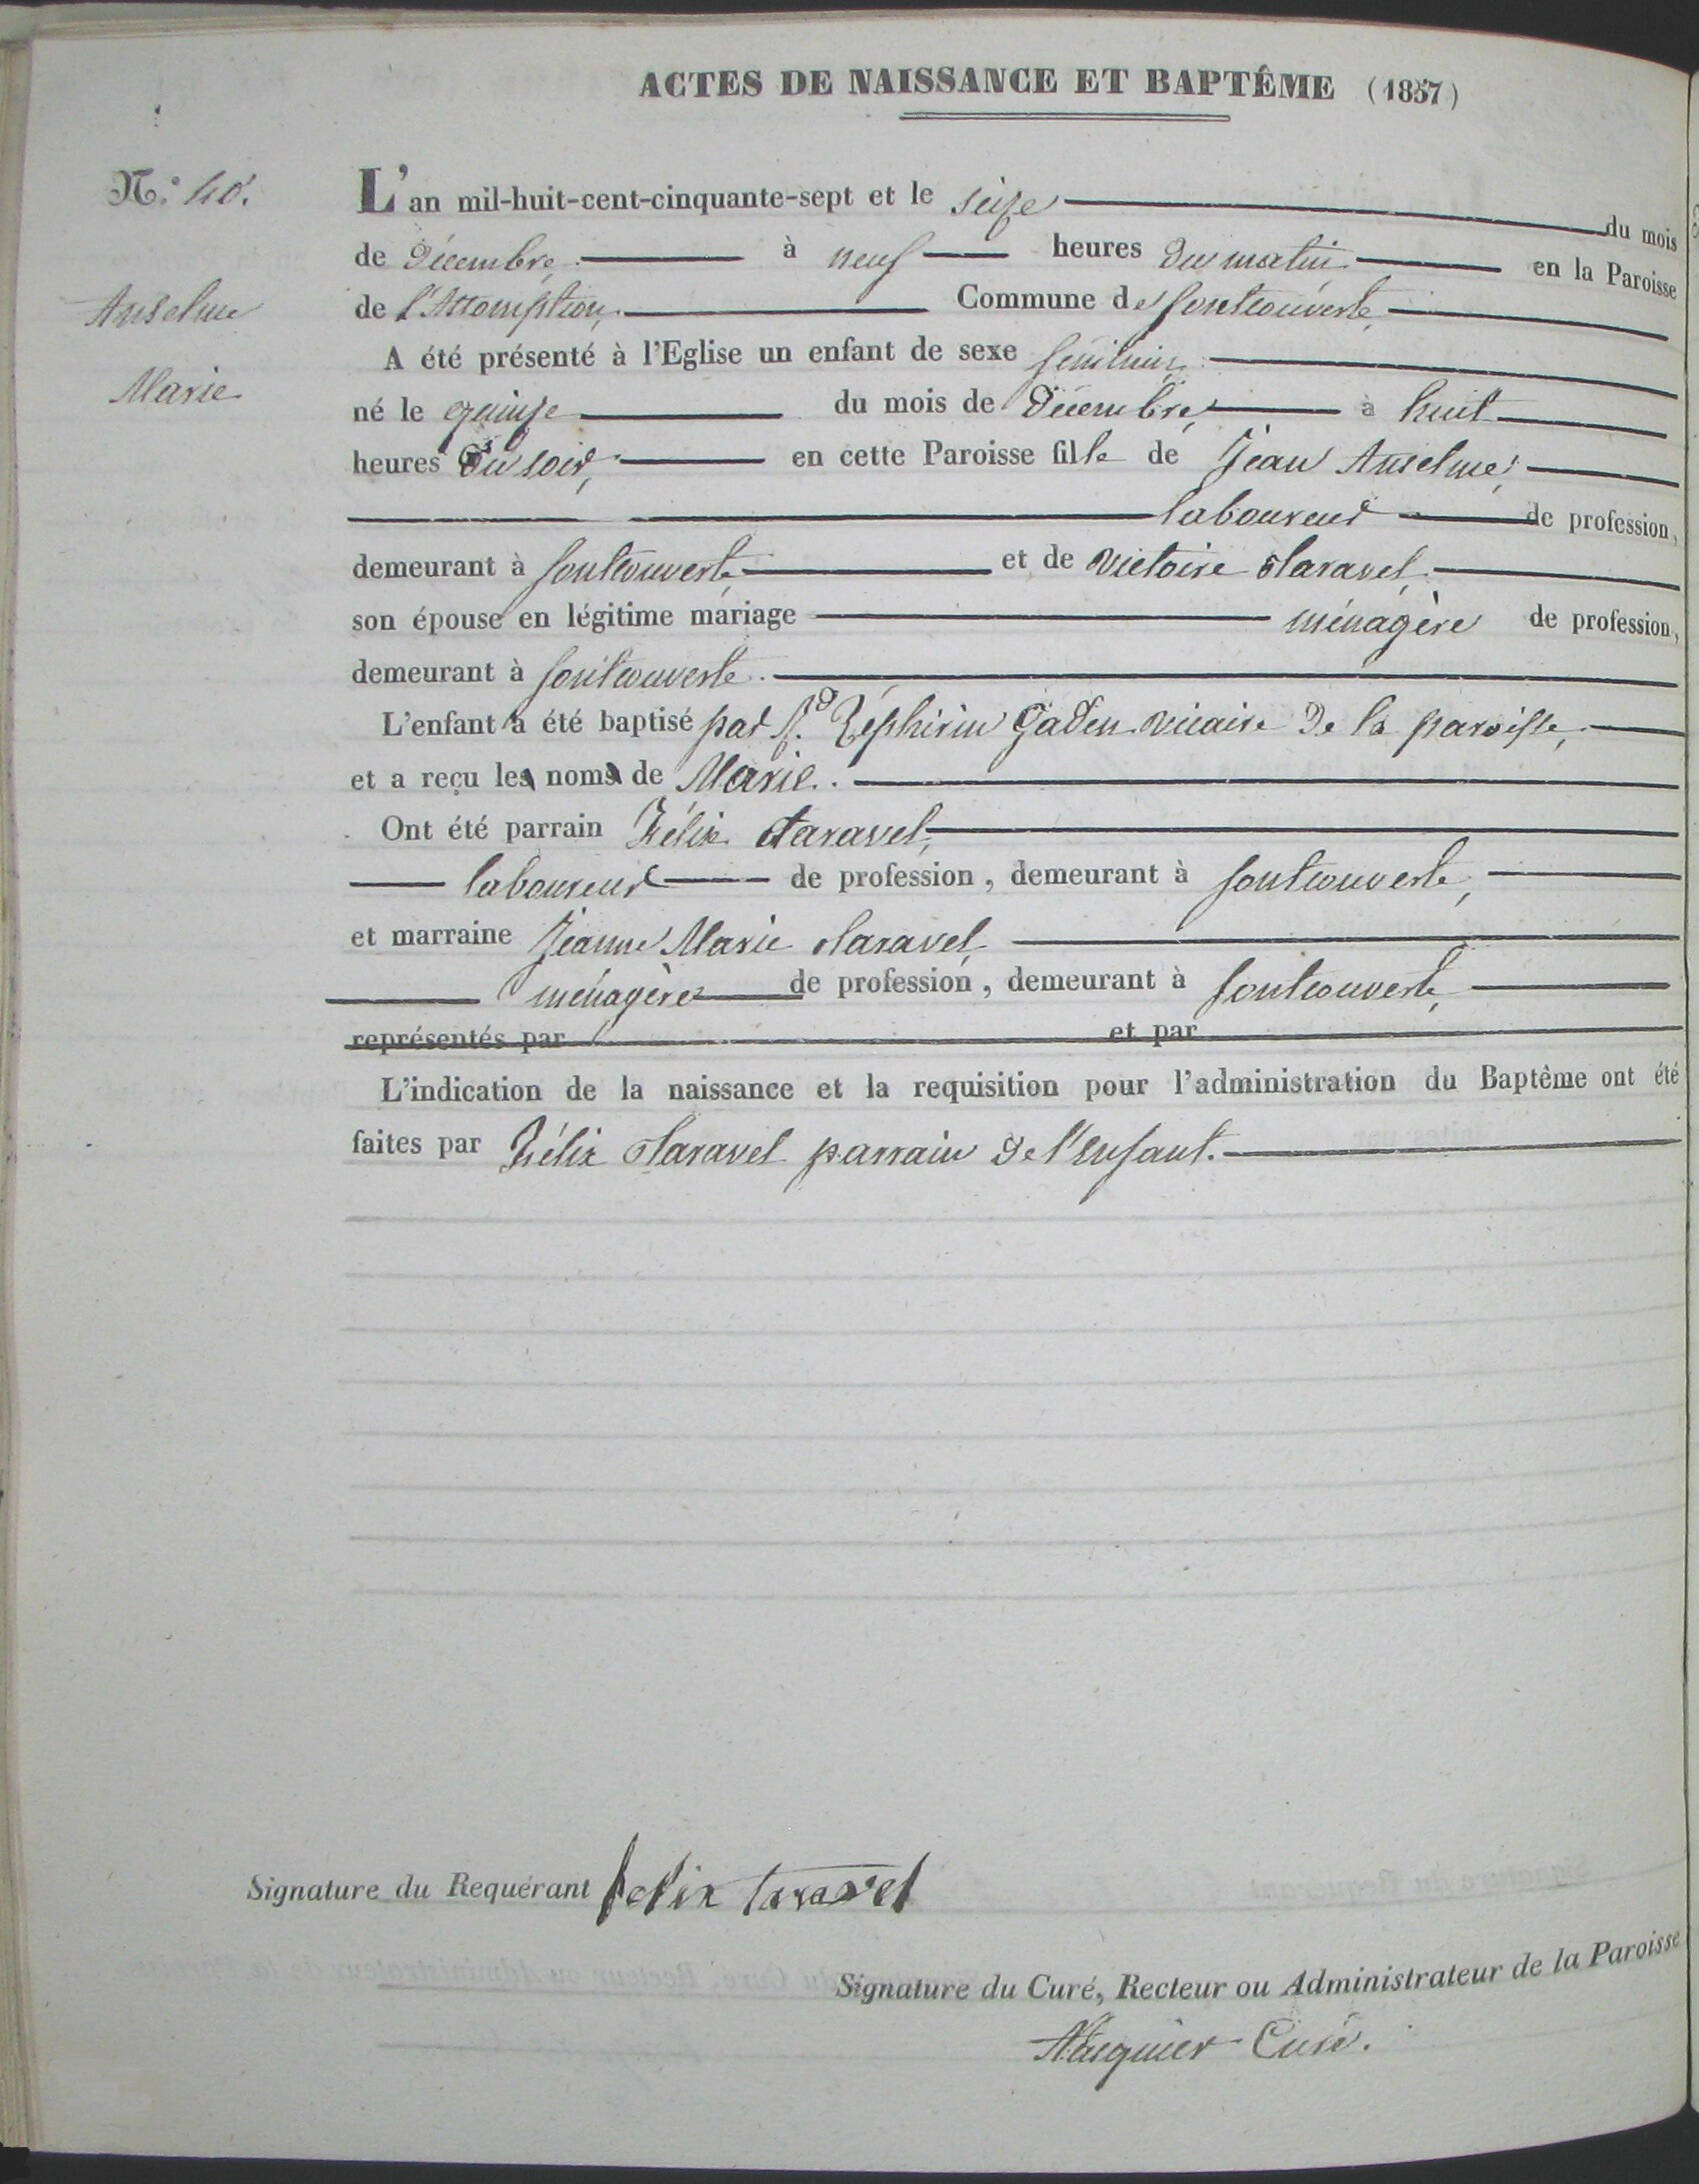 ACTES DE NAISSANCE ET BAPTÊME (1857)
N.° 40.
Anselme
Marie
L'an mil-huit-cent-cinquante-sept et le seize du mois
de Décembre, à neuf heures du matin en la Paroisse
de l'Assomption, Commune de fontcouverte,
A été présenté à l'Eglise un enfant de sexe féminin,
né le quinze du mois de Décembre, à huit
heures du soir, en cette Paroisse fille de Jean Anselme,
laboureur de profession,
demeurant à fontcouverte, et de victoire taravel,
son épouse en légitime mariage ménagère de profession,
demeurant à fontcouverte.
L'enfant a été baptisé par Rd Zéphirin Gaden vicaire de la paroisse,
et a reçu les noms de Marie.
Ont été parrain Félix taravel,
laboureur de profession, demeurant à fontcouverte,
et marraine Jeanne Marie taravel,
ménagère de profession, demeurant à fontcouverte,
représentés par et par
L'indication de la naissance et la requisition pour l'administration du Baptême ont été
faites par Félix taravel parrain de l'enfant.
Signature du Requérant felix taravel
Signature du Curé, Recteur ou Administrateur de la Paroisse
Curé.